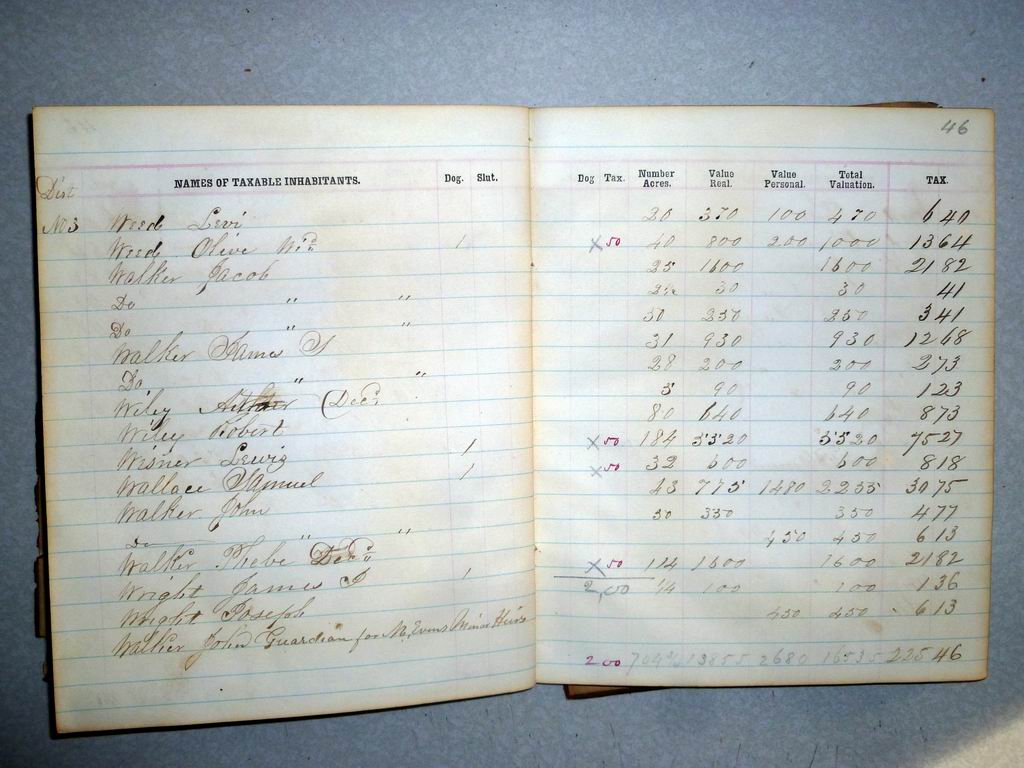 46
Dist
NAMES OF TAXABLE INHABITANTS. Dog. Slut. Dog Tax. Number Acres. Value Real. Value Personal. Total Valuation. TAX.
No 3 Weed Levi 20 370 100 470 6 40
Weed Olive Wid 1 X 50 40 800 200 1000 13 64
Walker Jacob 25 1600 1600 21 82
Do " " 2½ 30 30 41
Do " " 50 250 250 3 41
Walker James S 31 930 930 12 68
Do " " 28 200 200 2 73
Wiley (Decd 5 90 90 1 23
Wiley Robert 80 640 640 8 73
Wisner Lewis 1 X 50 184 5520 5520 75 27
Wallace Samuel 1 X 50 32 600 600 8 18
Walker John 43 775 1480 2255 30 75
Do " " 50 350 350 4 77
Walker Phebe Decd 450 450 6 13
Wright James S 1 X 50 114 1600 1600 21 82
Wright Joseph 2,00 ¼ 100 100 1 36
Walker John Guardian for M, Evans Minor Heirs 450 450 6 13
2 00 704¾ 13855 2680 16535 225 46